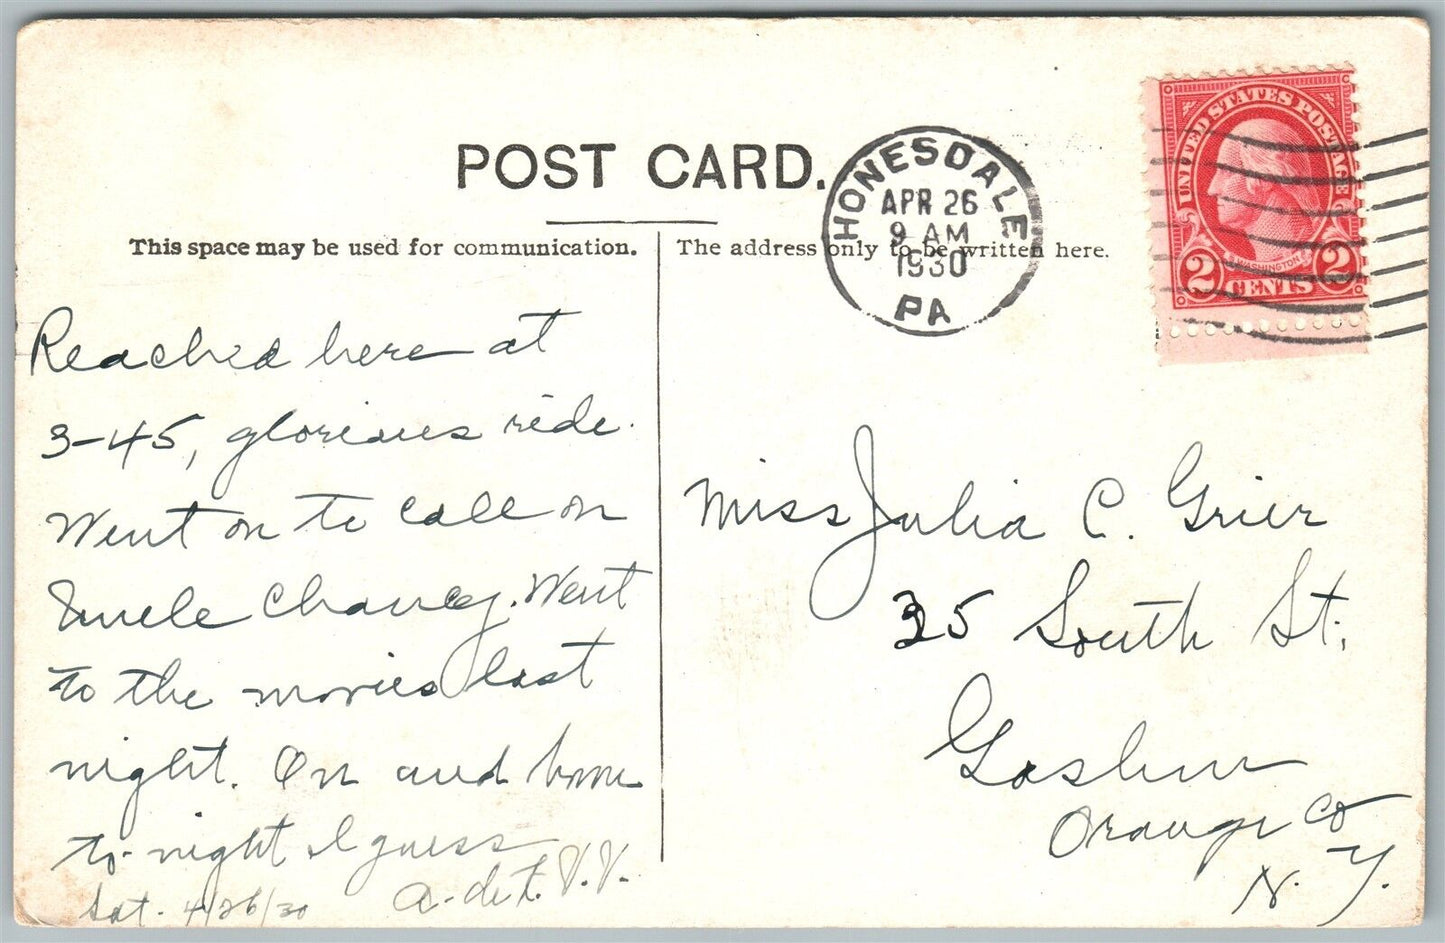 POST CARD.
This space may be used for communication.
The address only to be written here.
HONESDALE
APR 26
9 AM
1930
PA
UNITED STATES POSTAGE
WASHINGTON
2 CENTS 2
Reached here at
3-45, glorious ride.
Went on to call on
Uncle Chancey. Went
to the movies last
night. On and home
to-night I guess
Sat. 4/26/30
Miss Julia C. Grier
35 South St.
Goshen
Orange Co
N.Y.